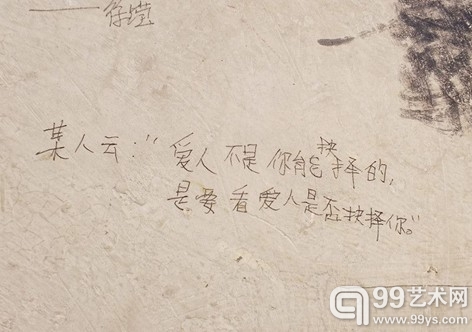 某人云：“爱人不是你能抉择的，
是要看爱人是否抉择你。”
99艺术网
www.99ys.com